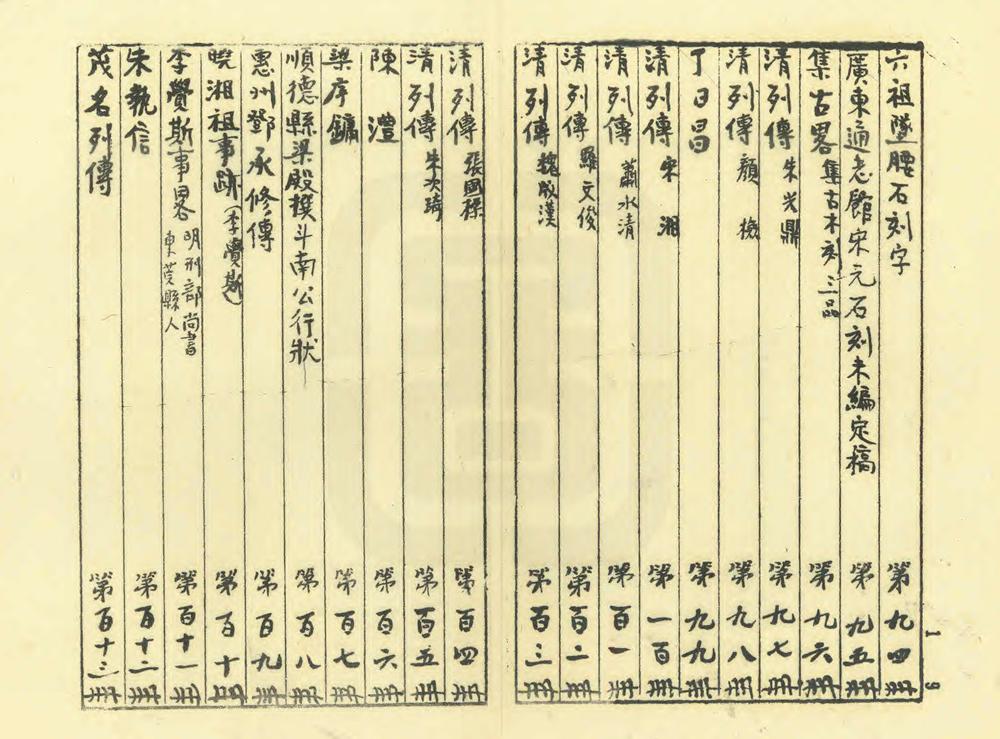 六祖墜腰石刻字 第九四冊
廣東通志館宋元石刻未編定稿 第九五冊
集古畧 集古木刻三品 第九六冊
清列傳 朱光鼎 第九七冊
清列傳 顏檢 第九八冊
丁日昌 第九九冊
清列傳 宋湘 第一百冊
清列傳 蕭水清 第百一冊
清列傳 羅文俊 第百二冊
清列傳 魏成漢 第百三冊
清列傳 張國樑 第百四冊
清列傳 朱次琦 第百五冊
陳澧 第百六冊
梁序鏞 第百七冊
順德縣梁殿撰斗南公行狀 第百八冊
惠州鄧承修傳 第百九冊
曉湘祖事跡(李覺斯) 第百十冊
李覺斯事畧 明刑部尚書 東莞縣人 第百十一冊
朱執信 第百十二冊
茂名列傳 第百十三冊
19